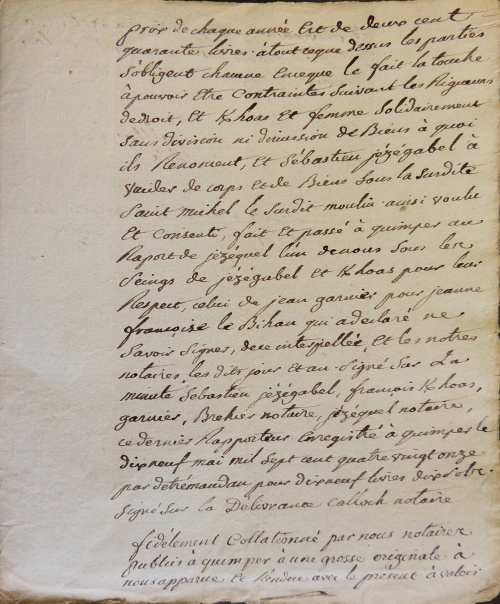 prix de chaque année Est de deux cent
quarante livres. à tout ceque dessus les parties
s'obligent chacune Enceque le fait la touche
à pouvoir Etre Contraintes Suivant les Rigueurs
dedroit, Et Khoas Et femme Solidairement
Sans division ni discussion de Biens à quoi
ils Renoncent, Et Sébastien jézégabel à
vuider de corps Et de Biens Sous la Surdite
Saint michel le Surdit moulin ainsi voulu
Et Consenti, fait Et passé à quimper au
Raport de jézéquel l'un denous Sous les
Seings de jézégabel Et Khoas pour leur
Respect, celui de jean garnier pour jeanne
françoise le Bihan qui a declaré ne
Savoir Signer, dece interpellée, Et les notres
notaires les dits jour et an Signé Sur La
minute Sébastien jézégabel, françois Khoas,
garnier, Breher notaire, jézéquel notaire,
ce dernier Rapporteur Enregistré à quimper le
dixneuf mai mil Sept cent quatre vingt onze
par detrémaudan pour dixneuf livres dix Sols.
Signé Sur la Délivrance Calloch notaire
fidèlement Collationné par nous notaires
publics à quimper à une grosse originale à
nous apparue Et Rendue avec le présent à valoir